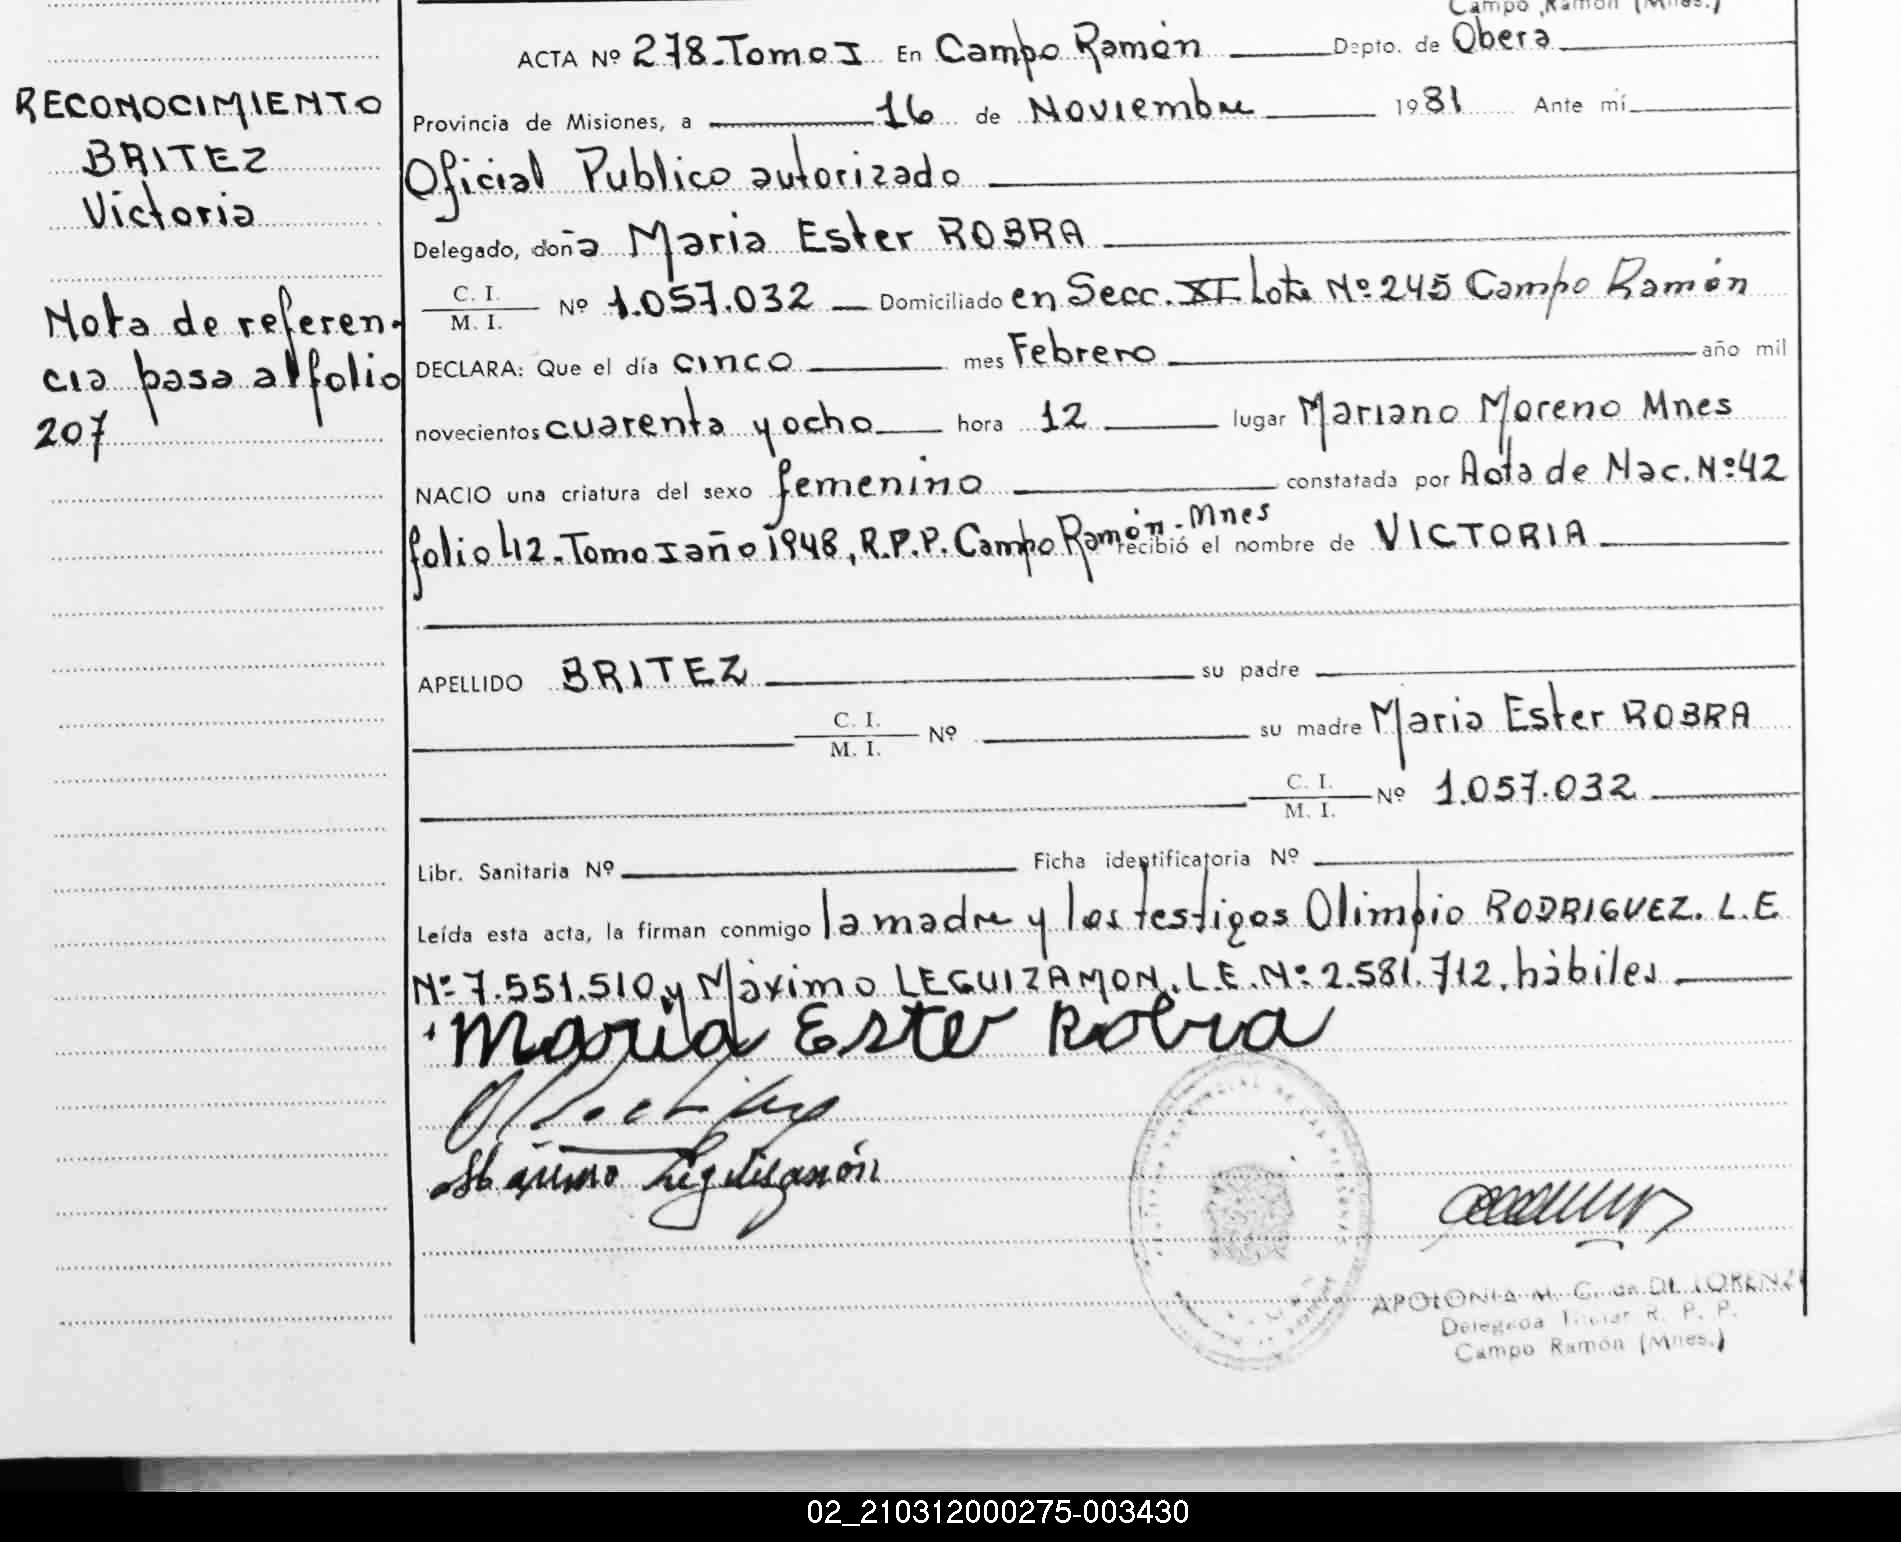 Campo Ramón (Mnes.)
ACTA Nº 278. Tomo I En Campo Ramón Depto. de Oberá
RECONOCIMIENTO
BRITEZ
Victoria
Nota de referen-
cia pasa al folio
207
Provincia de Misiones, a 16 de Noviembre 1981 Ante mí
Oficial Publico autorizado
Delegado, doña Maria Ester ROBRA
C. I.
M. I. Nº 1.057.032 Domiciliado en Secc. XI Lote Nº 245 Campo Ramón
DECLARA: Que el día cinco mes Febrero año mil
novecientos cuarenta y ocho hora 12 lugar Mariano Moreno Mnes
NACIO una criatura del sexo femenino constatada por Acta de Nac. Nº 42
folio 42. Tomo I año 1948, R.P.P. Campo Ramón - Mnes recibió el nombre de VICTORIA
APELLIDO BRITEZ su padre
C. I.
M. I. Nº su madre Maria Ester ROBRA
C. I.
M. I. Nº 1.057.032
Libr. Sanitaria Nº Ficha identificatoria Nº
Leída esta acta, la firman conmigo la madre y los testigos Olimpio RODRIGUEZ. L.E
Nº 7.551.510 y Máximo LEGUIZAMON. L.E. Nº 2.581.712. hábiles
Maria Ester Robra
Máximo Leguisamón
APOLONIA M. G. de DI LORENZO
Delegada Titular R. P. P.
Campo Ramón (Mnes.)
02_210312000275-003430